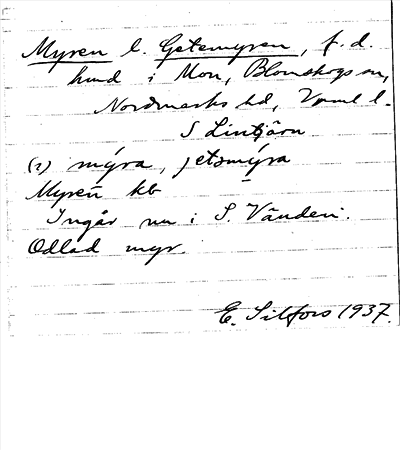 Myren l. Getemyren, f.d.
hemd i Mon, Blomskogs sn,
Nordmarks hd, Vrml l.
S Lintjärn
(2) mýra, jetsmýra
Myren kb
Ingår nu i S. Vänden.
Odlad myr.
E. Silfors 1937.